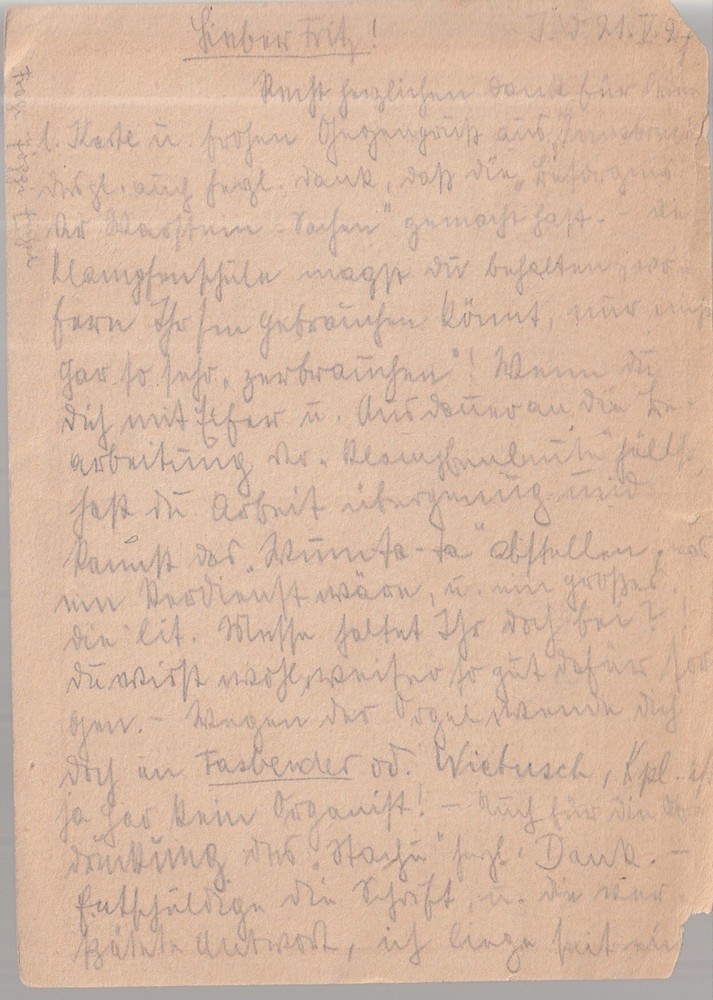 Lieber Fritz!
21.V.
Recht herzlichen Dank für Deine
l. Karte u. frohen Gegengruß aus
desgl. auch herzl. Dank, daß die
der Sachen" gemacht hast. – Die
Klampfenschule magst du behalten, wo-
fern Ihr sie gebrauchen könnt, nur nicht
gar so sehr „zerbrauchen"! Wenn du
dich mit Eifer u. Ausdauer an die Be-
arbeitung der „Klampfenleute" hältst,
hast du Arbeit übergenug und
kannst das „Wumta-ta" abstellen, was
ein Verdienst wäre, u. ein großes.
die lit. Messe haltet Ihr doch bei?
du wirst wohl weiter so gut dafür sor-
gen. – Wegen der Orgel wende dich
doch an Fasbender od. Wiebusch, Kpl. ist
ja gar kein Organist! – Auch für die
des „Stachu" herzl. Dank. –
Entschuldige die Schrift, u. die ver-
spätete Antwort, ich liege seit